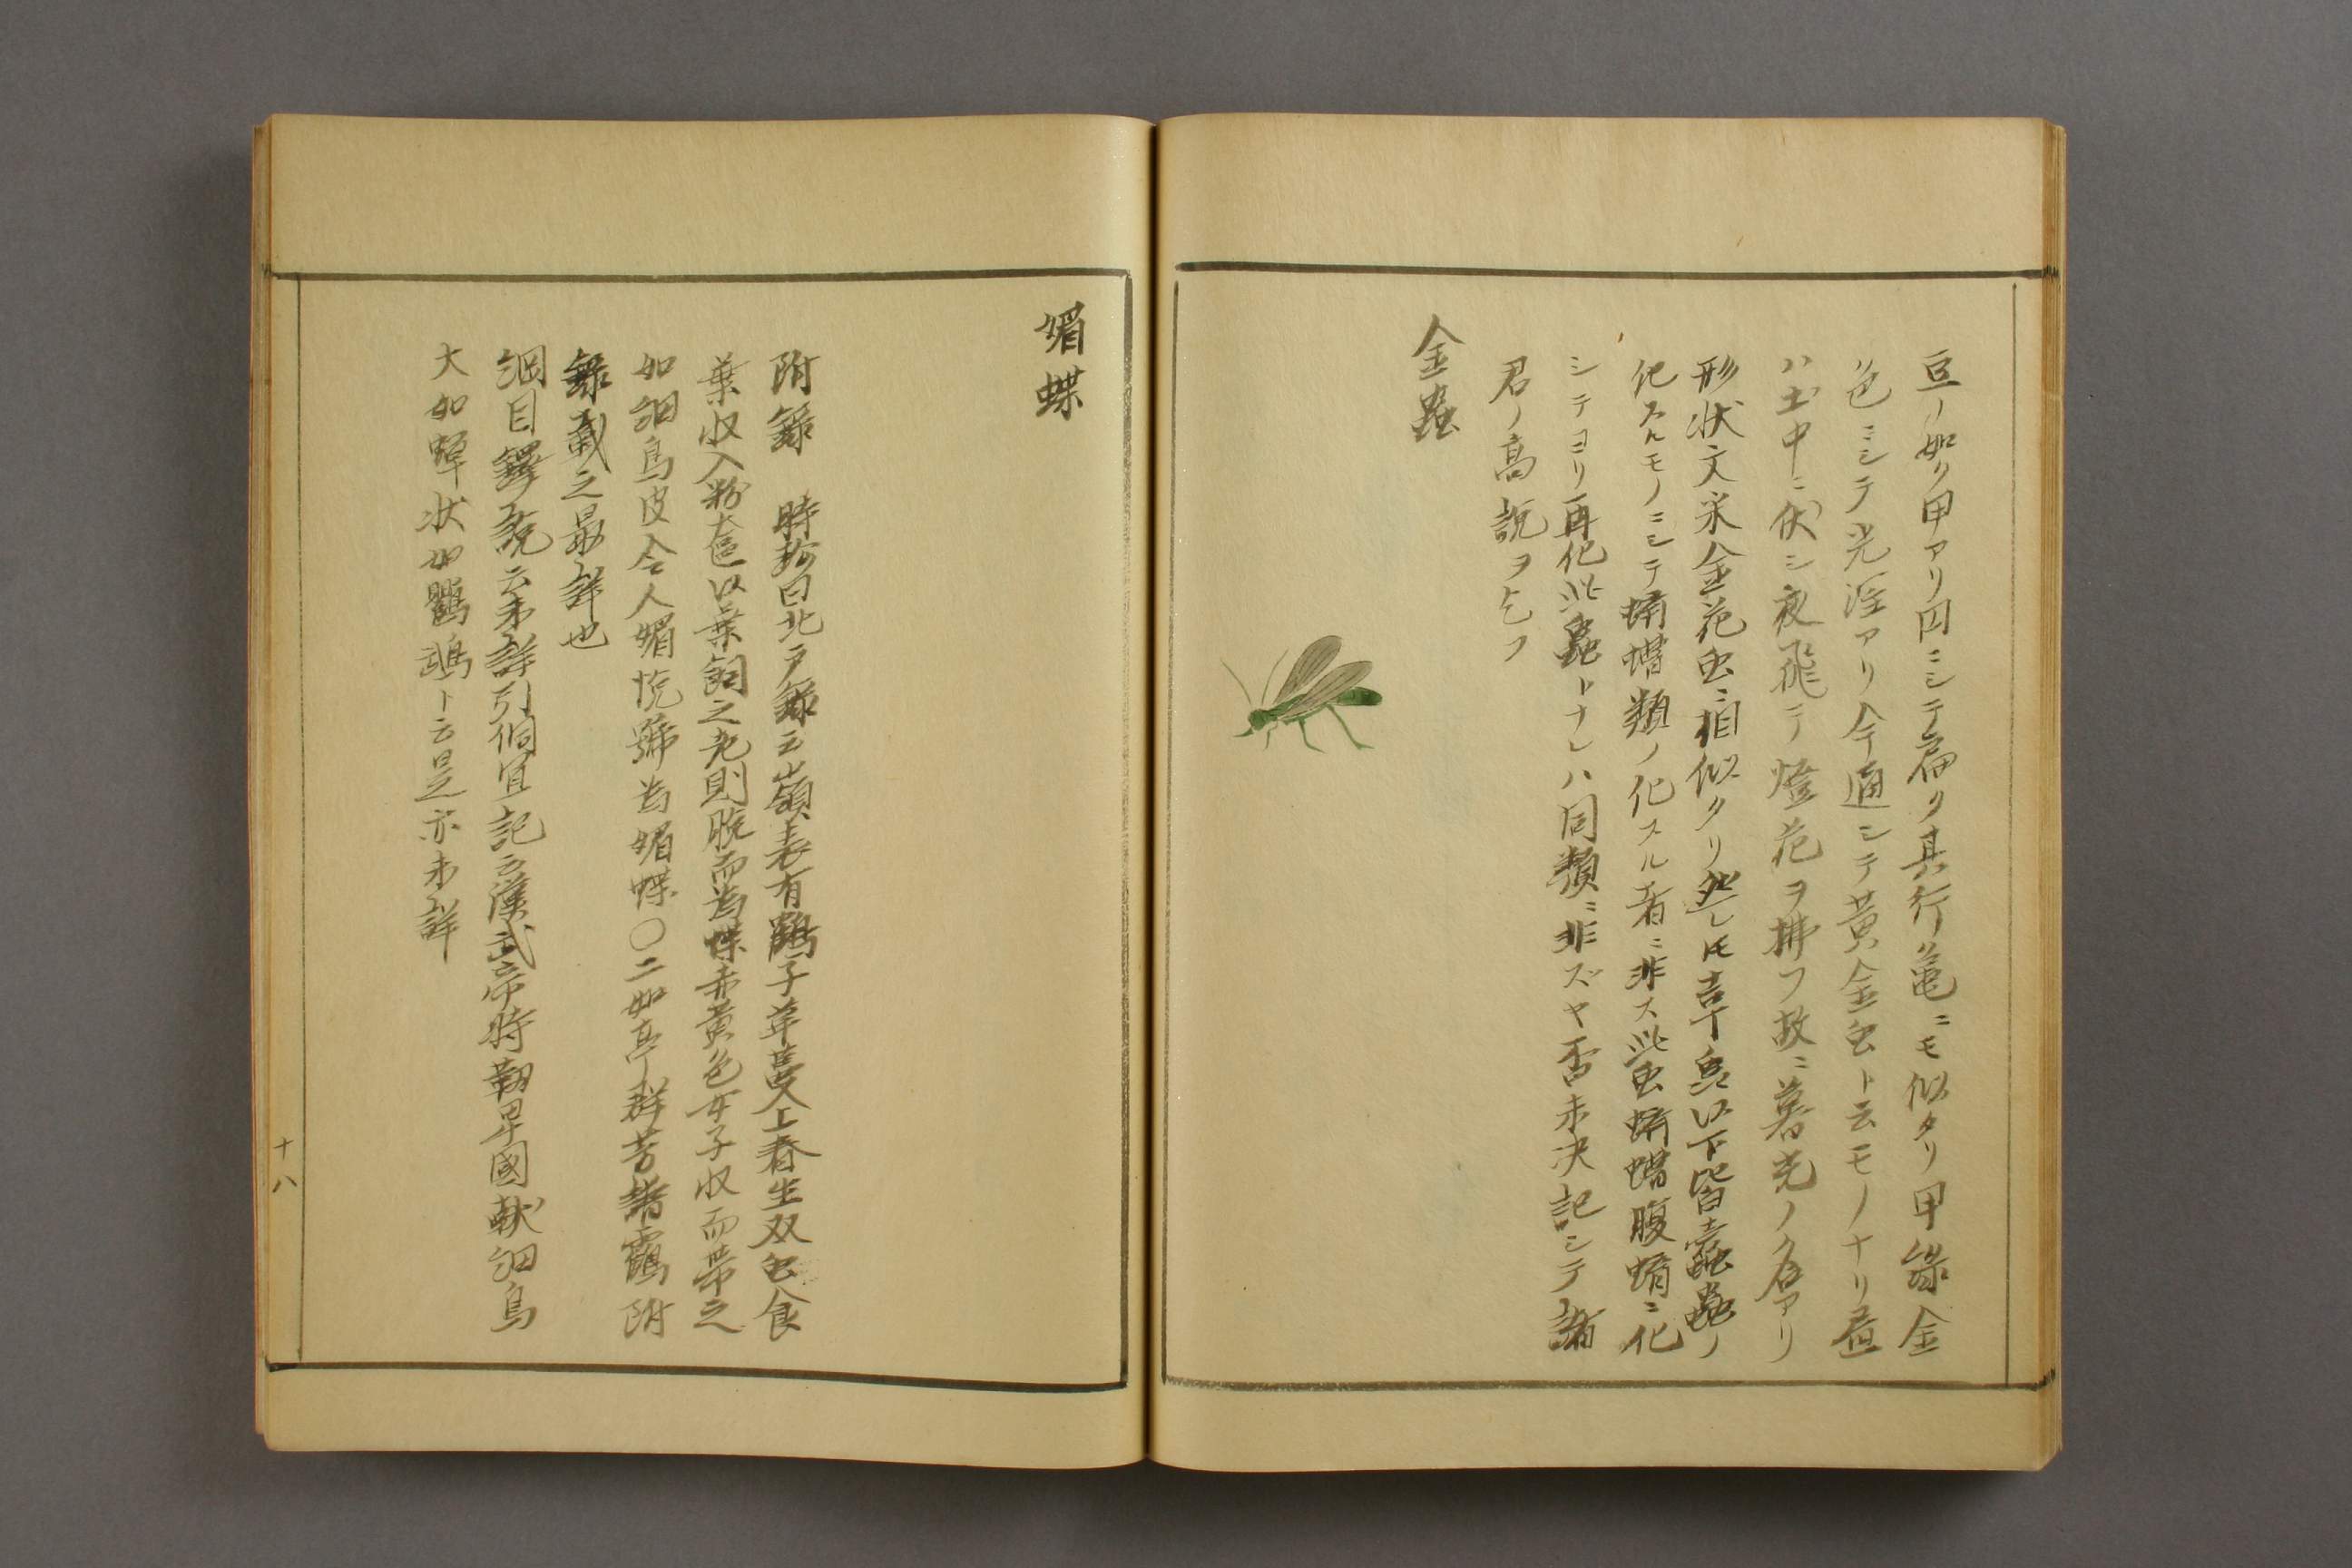 豆ノ如ク甲アリ円ニシテ扁ク其行亀ニモ似タリ甲緑金
色ニシテ光澤アリ今通シテ黄金虫ト云モノナリ昼
ハ土中ニ伏シ夜飛テ燈花ヲ拂フ故ニ暮光ノ名アリ
形状文采金花虫ニ相似タリ然レ𪜈吉丁虫以下皆蠹蟲ノ
化スルモノニシテ蠐螬類ノ化スル者ニ非ス此虫蠐螬腹蜟ニ化
シテヨリ再化此蟲トナレハ同類ニ非ズヤ否未決記シテ諸
君ノ高説ヲ乞フ
金蟲
媚蝶
附錄 時珍曰北戸錄云嶺表有鶴子草蔓上春生双虫食
葉收入粉奩以葉飼之老則脱而為蝶赤黄色女子收而帯之
如細鳥皮令人媚悦號為媚蝶〇二如亭群芳譜鶴附
錄載之最詳也
綱目釋説云未詳引侗冥記云漢武帝時勒畢國献細鳥
大如蠅状如鸚鵡ト云是亦未詳
十八